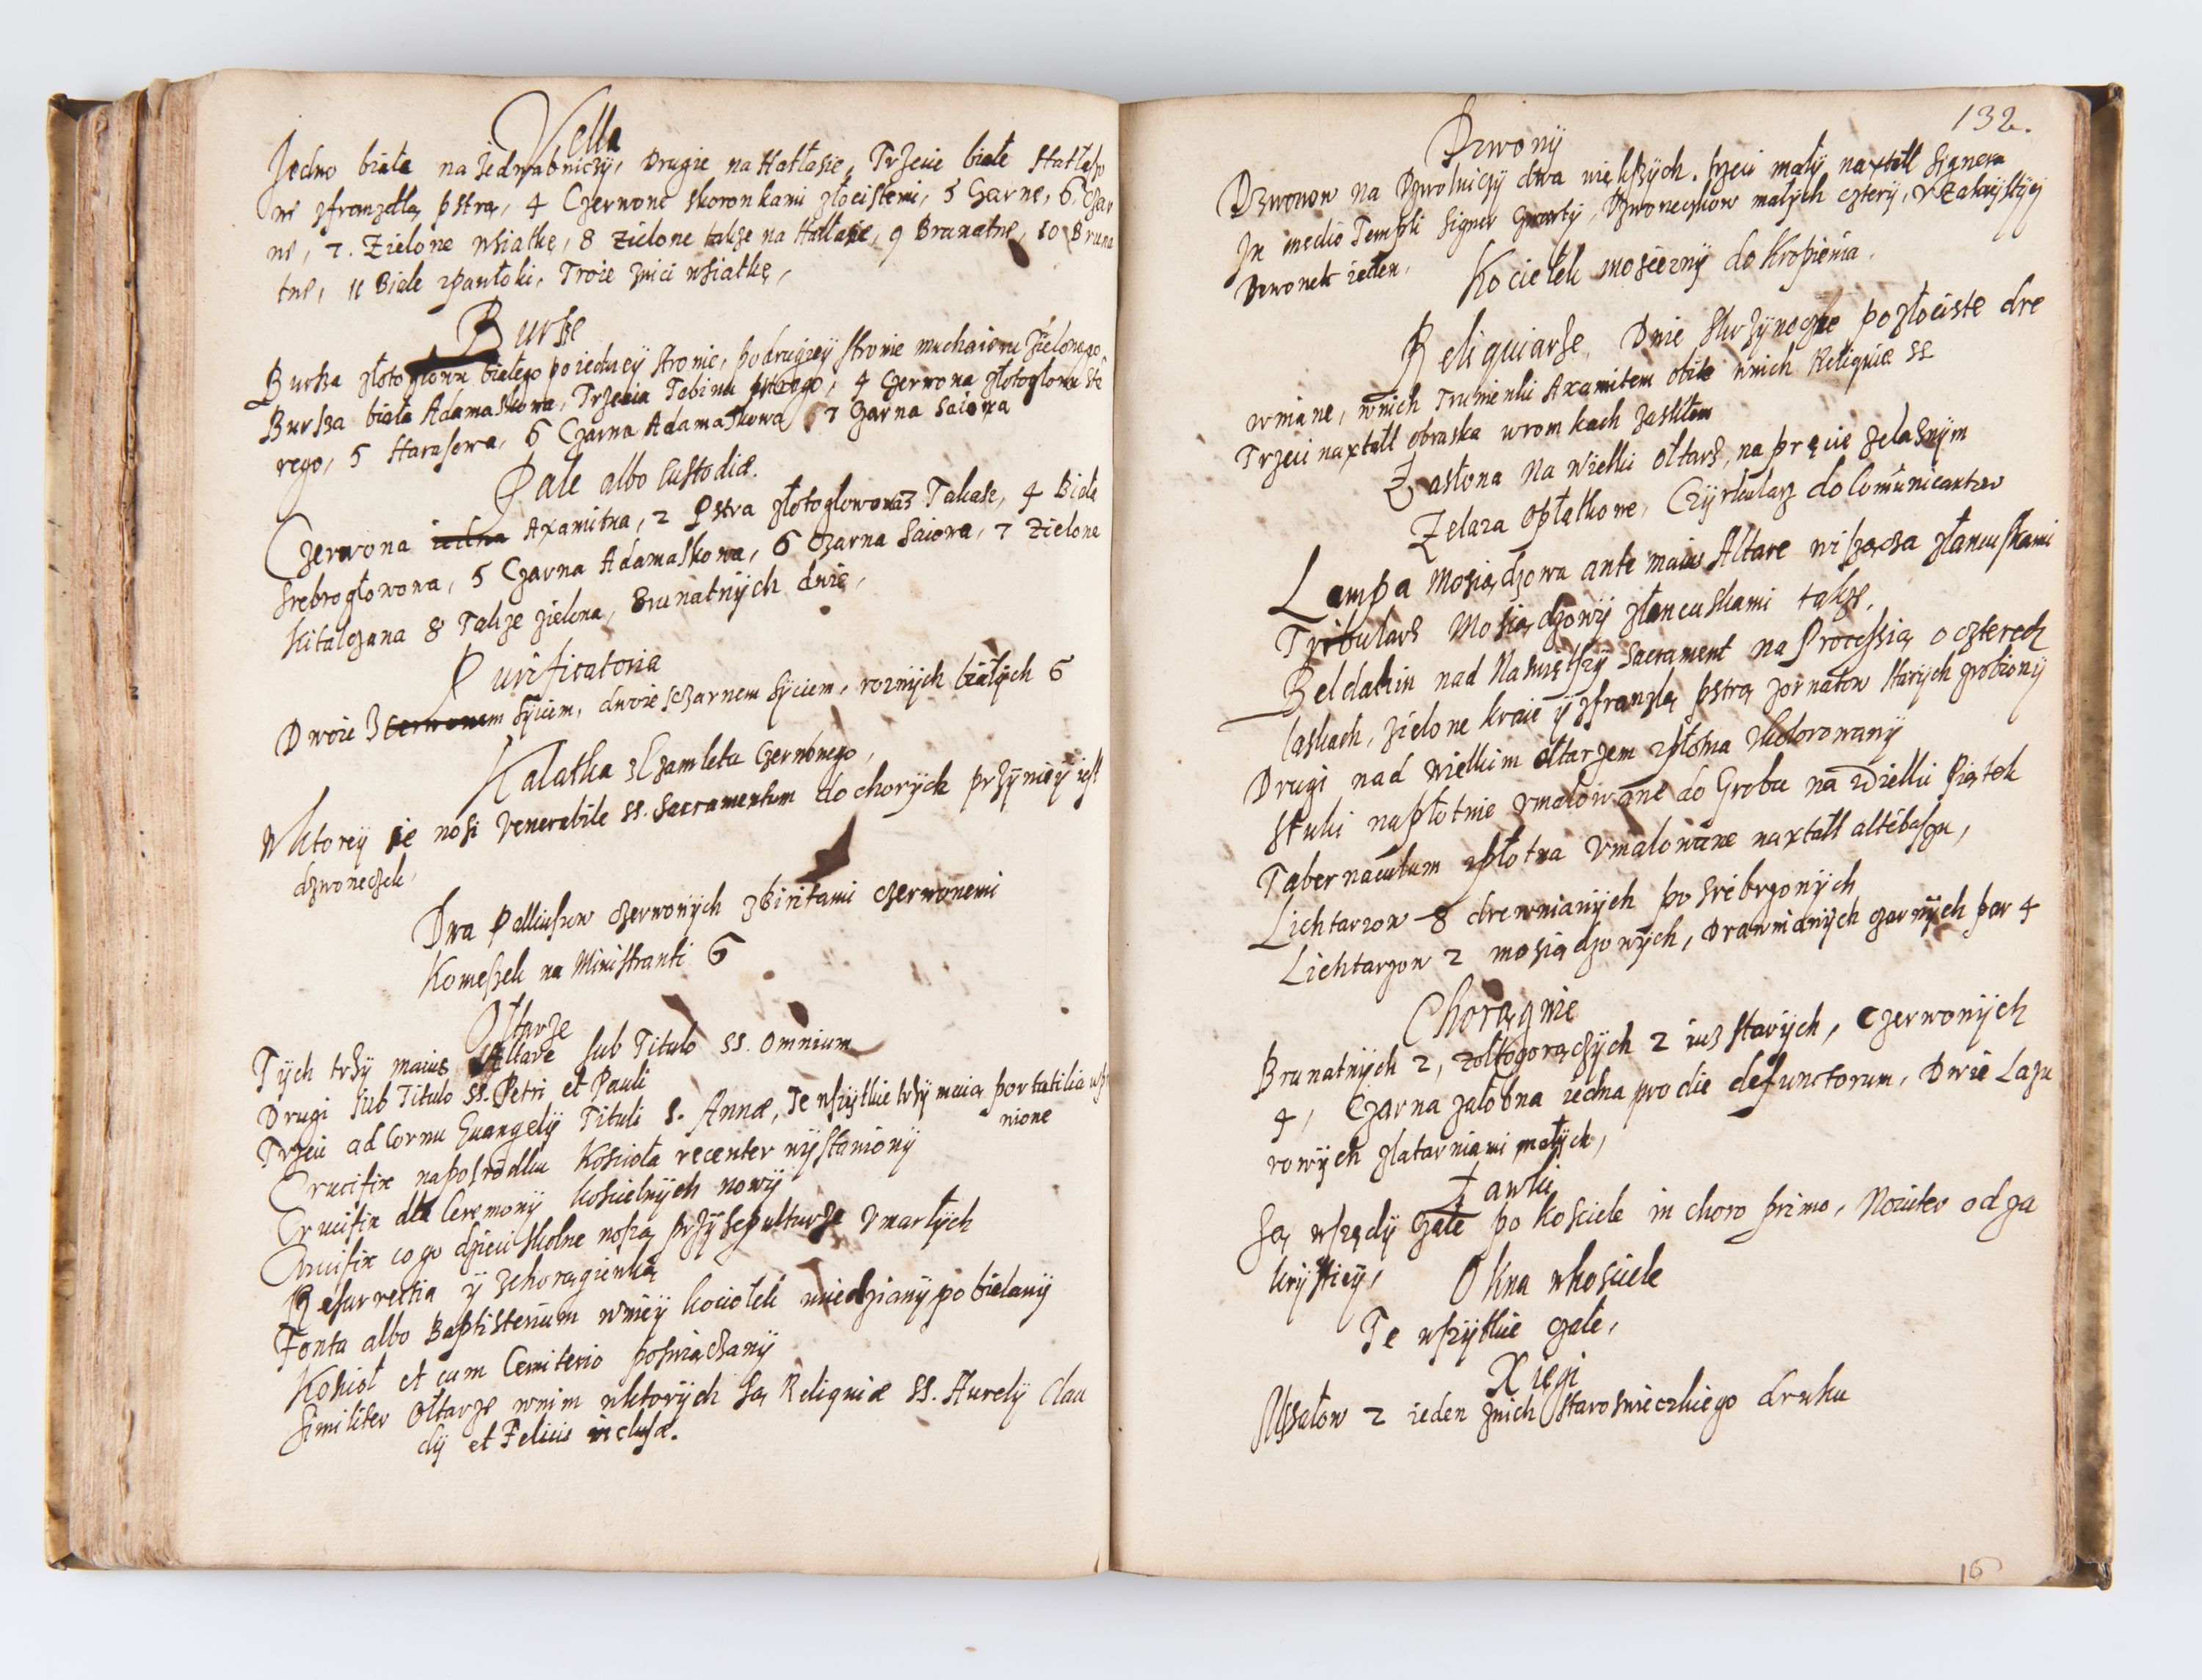 Vella
Jedno białe na Jedwabniczÿ, Drugie na Hatłasie, Trzecie białe Hatłaso
we zfranzdlą pstrą, 4 Czerwone skoronkami złocistemi, 5 Czarne, 6. Czar
ne, 7. Zielone wsiatkę, 8 Zielone takze na Hatłasie, 9 Brunatne, 10 Bruna
tne, 11 Biale zpawłoki, Troie znici wsiatkę,
Bursze
Bursza złotogłowu białego poiedneÿ stronie, podrugieÿ stronie muchaieru zielonego
Bursza biała Adamaskowa, Trzecia Tabinu pstrego, 4 Czerwona złotogłowu sta
rego, 5 Harasowa, 6 Czarna Adamaskowa 7 Czarna Saiowa
Pale albo Custodiæ.
Czerwona iedna Axamitna, 2 Pstra złotogłowowa 3 Takase, 4 Biała
Srebrogłowowa, 5 Czarna Adamaskowa, 6 Czarna Saiowa, 7 Zielona
Kitalczana 8 Takze zielona, Brunatnÿch dwie,
Purificatoria
Dwoie Zczerwonem sÿciem, dwoie sczarnem sÿciem, roznÿch białÿch 6
Kalatka zCzamleta Czerwonego,
Wktoreÿ sie nosi Venerabile SS. Sacramentum do chorÿch przÿnieÿ iest
dzwoneczek,
Dwa Palliuszow czerwonÿch zbiritami czerwonemi
Komeszek na Ministranti 6
Ołtarze
Tÿch trzÿ maius Altare sub Titulo SS. Omnium
Drugi sub Titulo SS. Petri et Pauli
Trzeci ad Cornu Euangelÿ Tituli S. Annæ, Te wszÿtkie trzÿ maią portatilia
nione
Crucifix naposrodku Kosciola recenter wÿstawionÿ
Crucifix dla Ceremonÿ koscielnÿch nowÿ
Crucifix co go dzieci skolne noszą przÿ sepulturze Vmarłÿch
Resurrectia ÿ zchorągienką
Fonta albo Baptisterium wnieÿ kociołek miedzianÿ pobielanÿ
Kosciol et cum Cemiterio poswiączanÿ
Similiter Ołtarze wnim wktorÿch są Reliquiæ SS. Aurelÿ Clau
dÿ et Felicis inclusæ.
132.
Dzwonÿ
Dzwonow na Dzwolniczÿ dwa większÿch. trzeci małÿ naxtałt Signera
In medio Templi Signer Czwartÿ, Dzwoneczkow małÿch czterÿ, VZakrÿstÿeÿ
Dzwonek ieden,
Kociełek mosieznÿ do Kropienia,
Reliquiarze, Dwie skrzÿnoczke pozłociste dre
wniane, wnich Trumienki Axamitem obite wnich Reliquiæ SS
Trzeci naxtałt obraska wromkach zaskłem
Zasłona na wielki ołtarz, na pręcie zelasnÿm
Zelaza opłatkowe, Czÿrkularz do Comunicantow
Lampa Mosiądzowa ante maius Altare wisząca złancuskami
Tribularz Mosiądzowÿ złancuskami takze,
Beldakin nad Naswiętszÿ Sacrament na Processią o czterech
laskach, zielone kraie ÿ zfranzlą pstrą zornatow starÿch zrobionÿ
Drugi nad wielkim ołtarzem zpłotna Vkolorowanÿ
Stuki napłotnie Vmalowane do Grobu na wielki Piątek
Tabernaculum zpłotna Vmalowane naxtałt altębaszu,
Lichtarzow 8 drewnianÿch posrebrzonÿch
Lichtarzow 2 mosiądzowÿch, Drewnianÿch czarnÿch par 4
Chorągwie
Brunatnÿch 2, zołtogorączÿch 2 iuz starÿch, Czerwonÿch
4, Czarna załobna iedna pro die defunctorum, Dwie Lazu
rowÿch zlatarniami małÿch,
Ławki
Są wszędÿ całe po Kosciele in choro primo, Noviter od za
krÿstieÿ,
Okna wkosciele
Te wszÿtkie całe,
Xięgi
Mszałow 2 ieden znich staroswieczkiego druku
16